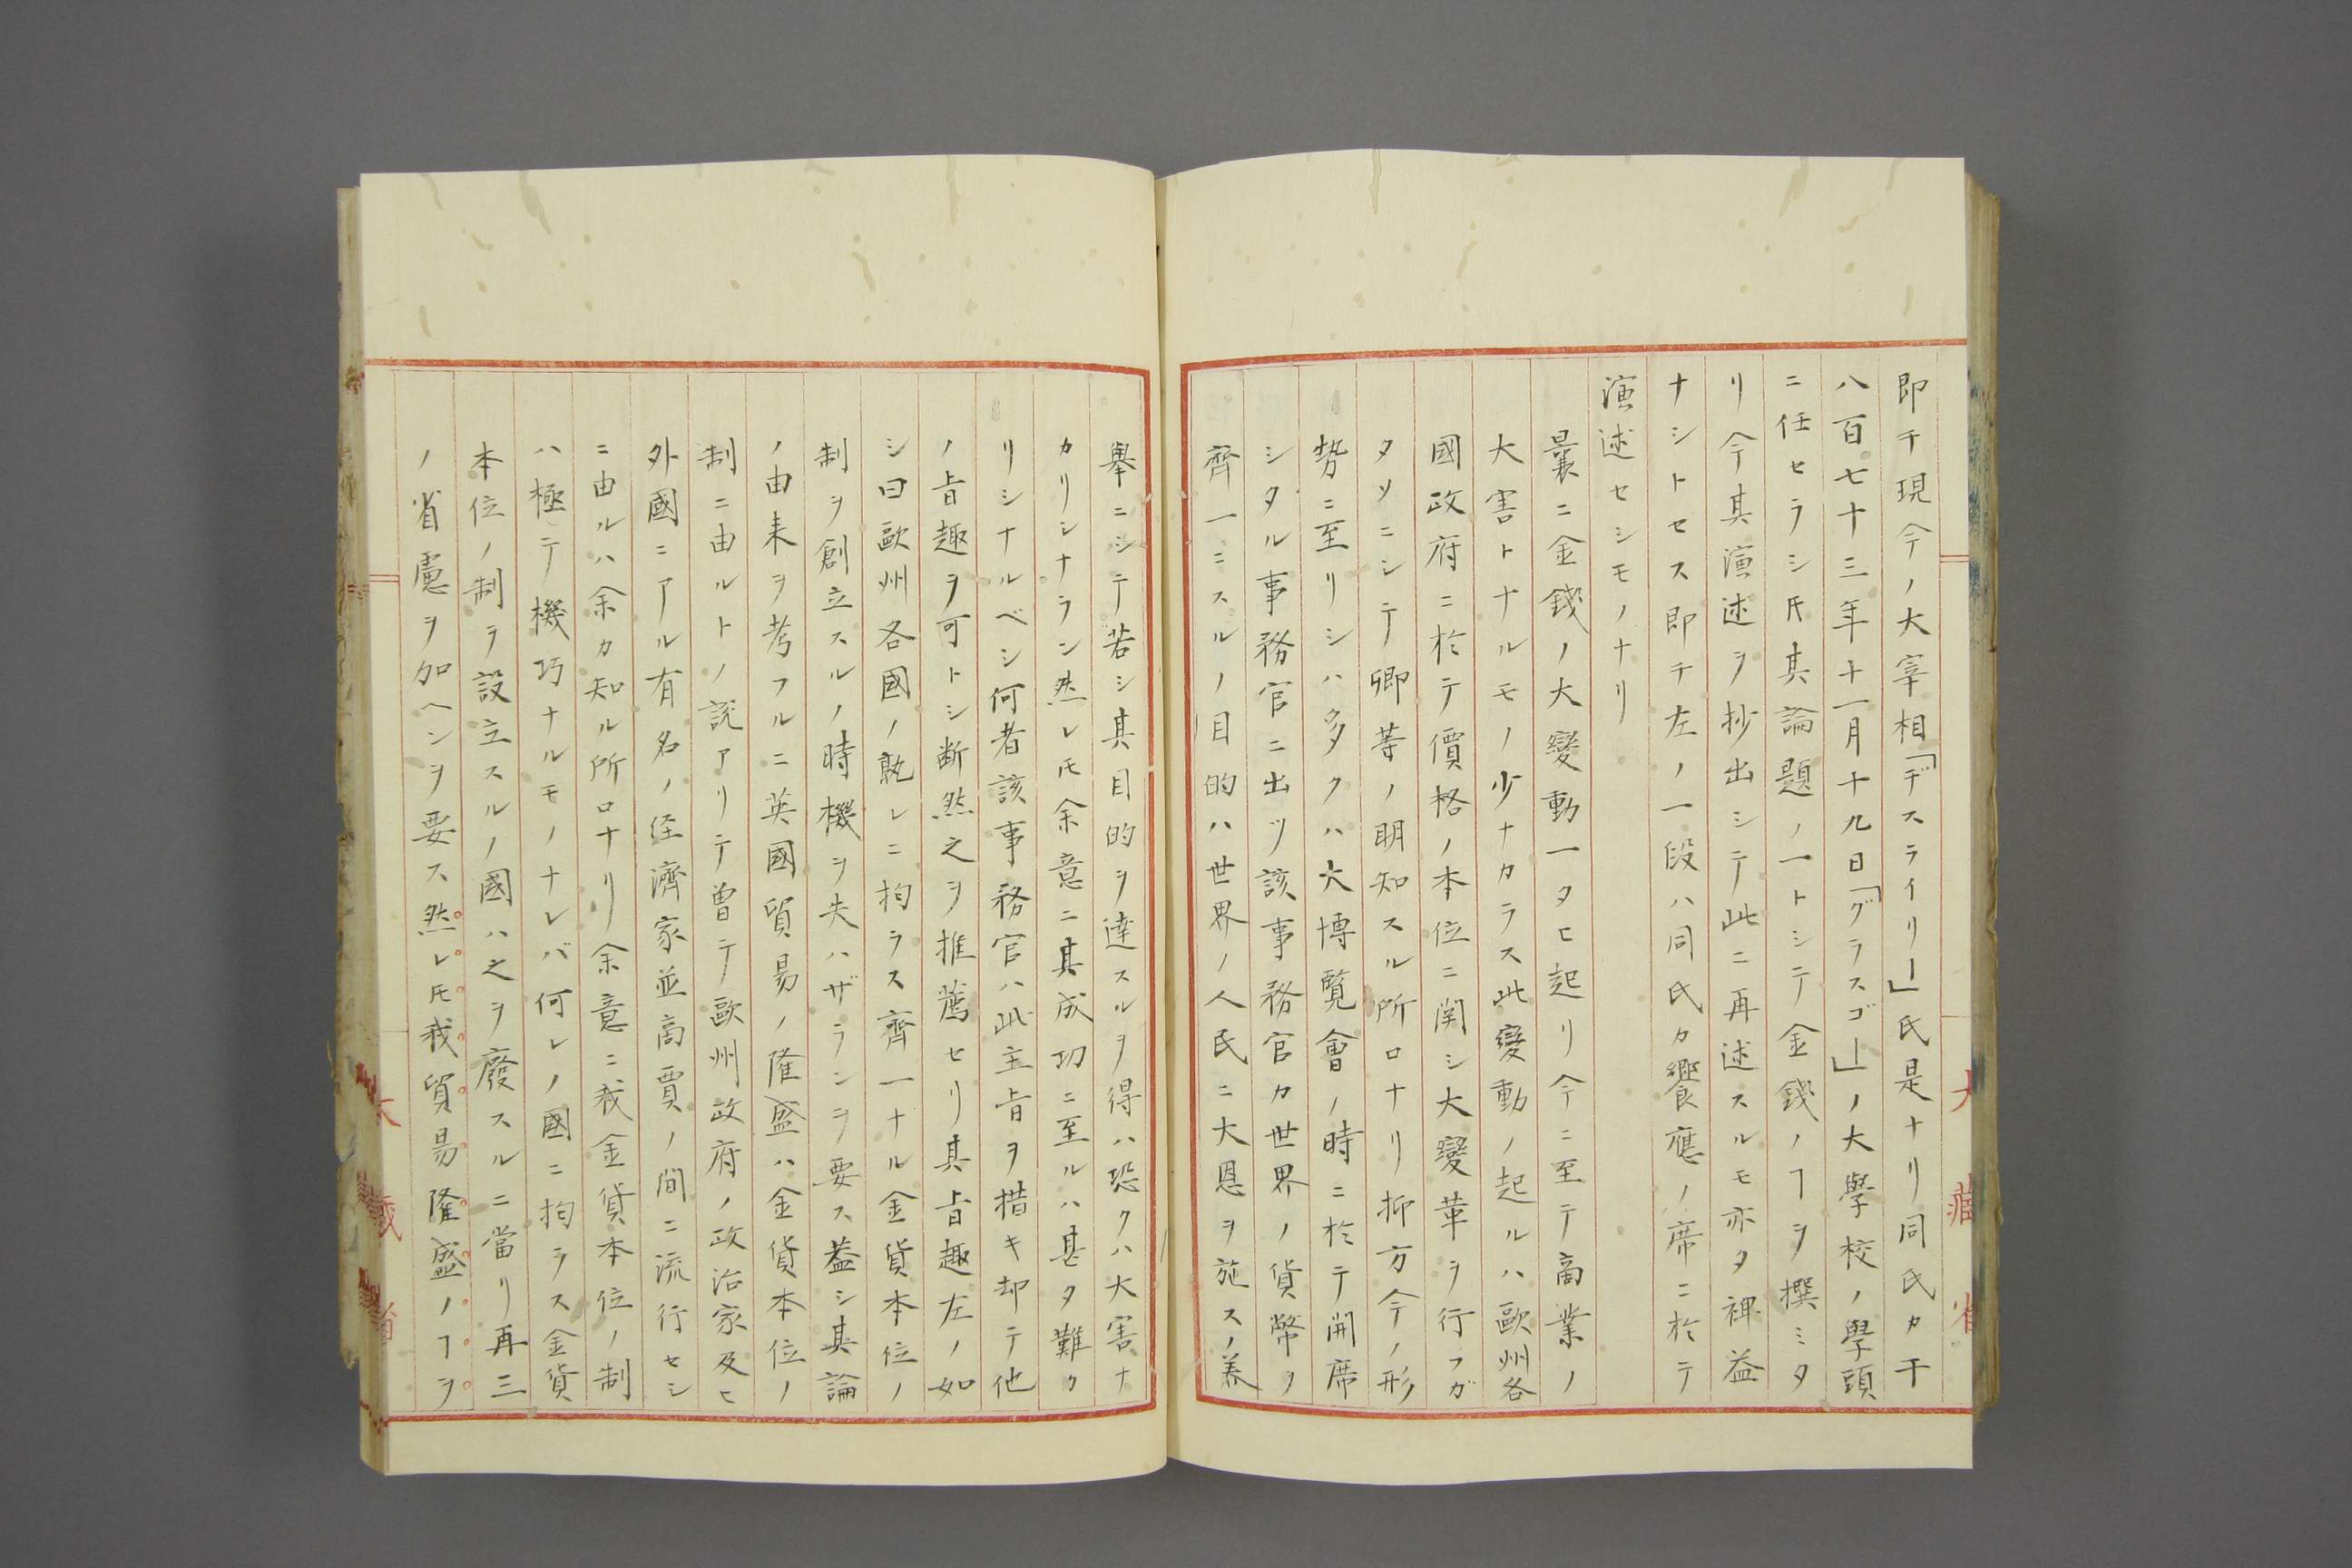 即チ現今ノ大宰相「ヂスライリー」氏是ナリ同氏カ千
八百七十三年十一月十九日「グラスゴー」ノ大學校ノ學頭
ニ任セラシ𪜈其論題ノ一トシテ金錢ノヿヲ撰ミタ
リ今其演述ヲ抄出シテ此ニ再述スルモ亦タ裨益
ナシトセス即チ左ノ一段ハ同氏カ饗應ノ席ニ於テ
演述セシモノナリ
曩ニ金錢ノ大變動一タヒ起リ今ニ至テ商業ノ
大害トナルモノ少ナカラス此變動ノ起ルハ歐州各
國政府ニ於テ價格ノ本位ニ関シ大變革ヲ行フガ
タソニシテ卿等ノ明知スル所ロナリ抑方今ノ形
勢ニ至リシハ多クハ大博覧會ノ時ニ於テ開席
シタル事務官ニ出ツ該事務官カ世界ノ貨幣ヲ
齊一ニスルノ目的ハ世界ノ人民ニ大恩ヲ施スノ美
舉ニシテ若シ其目的ヲ達スルヲ得ハ恐クハ大害ナ
カリシナラン然レ𪜈余意ニ其成功ニ至ルハ甚タ難ク
リシナルベシ何者該事務官ハ此主旨ヲ措キ却テ他
ノ旨趣ヲ可トシ断然之ヲ推薦セリ其旨趣左ノ如
シ曰歐州各國ノ孰レニ拘ラス齊一ナル金貨本位ノ
制ヲ創立スルノ時機ヲ失ハザランヲ要ス蓋シ其論
ノ由来ヲ考フルニ英國貿易ノ隆盛ハ金貨本位ノ
制ニ由ルトノ説アリテ曽テ歐州政府ノ政治家及ヒ
外國ニアル有名ノ経濟家並商賈ノ間ニ流行セシ
ニ由ルハ余カ知ル所ロナリ余意ニ我金貨本位ノ制
ハ極テ機巧ナルモノナレバ何レノ國ニ拘ラス金貨
本位ノ制ヲ設立スルノ國ハ之ヲ廢スルニ當リ再三
ノ省慮ヲ加ヘンヲ要ス然レ𪜈我貿易隆盛ノヿヲ
大藏省
大藏省